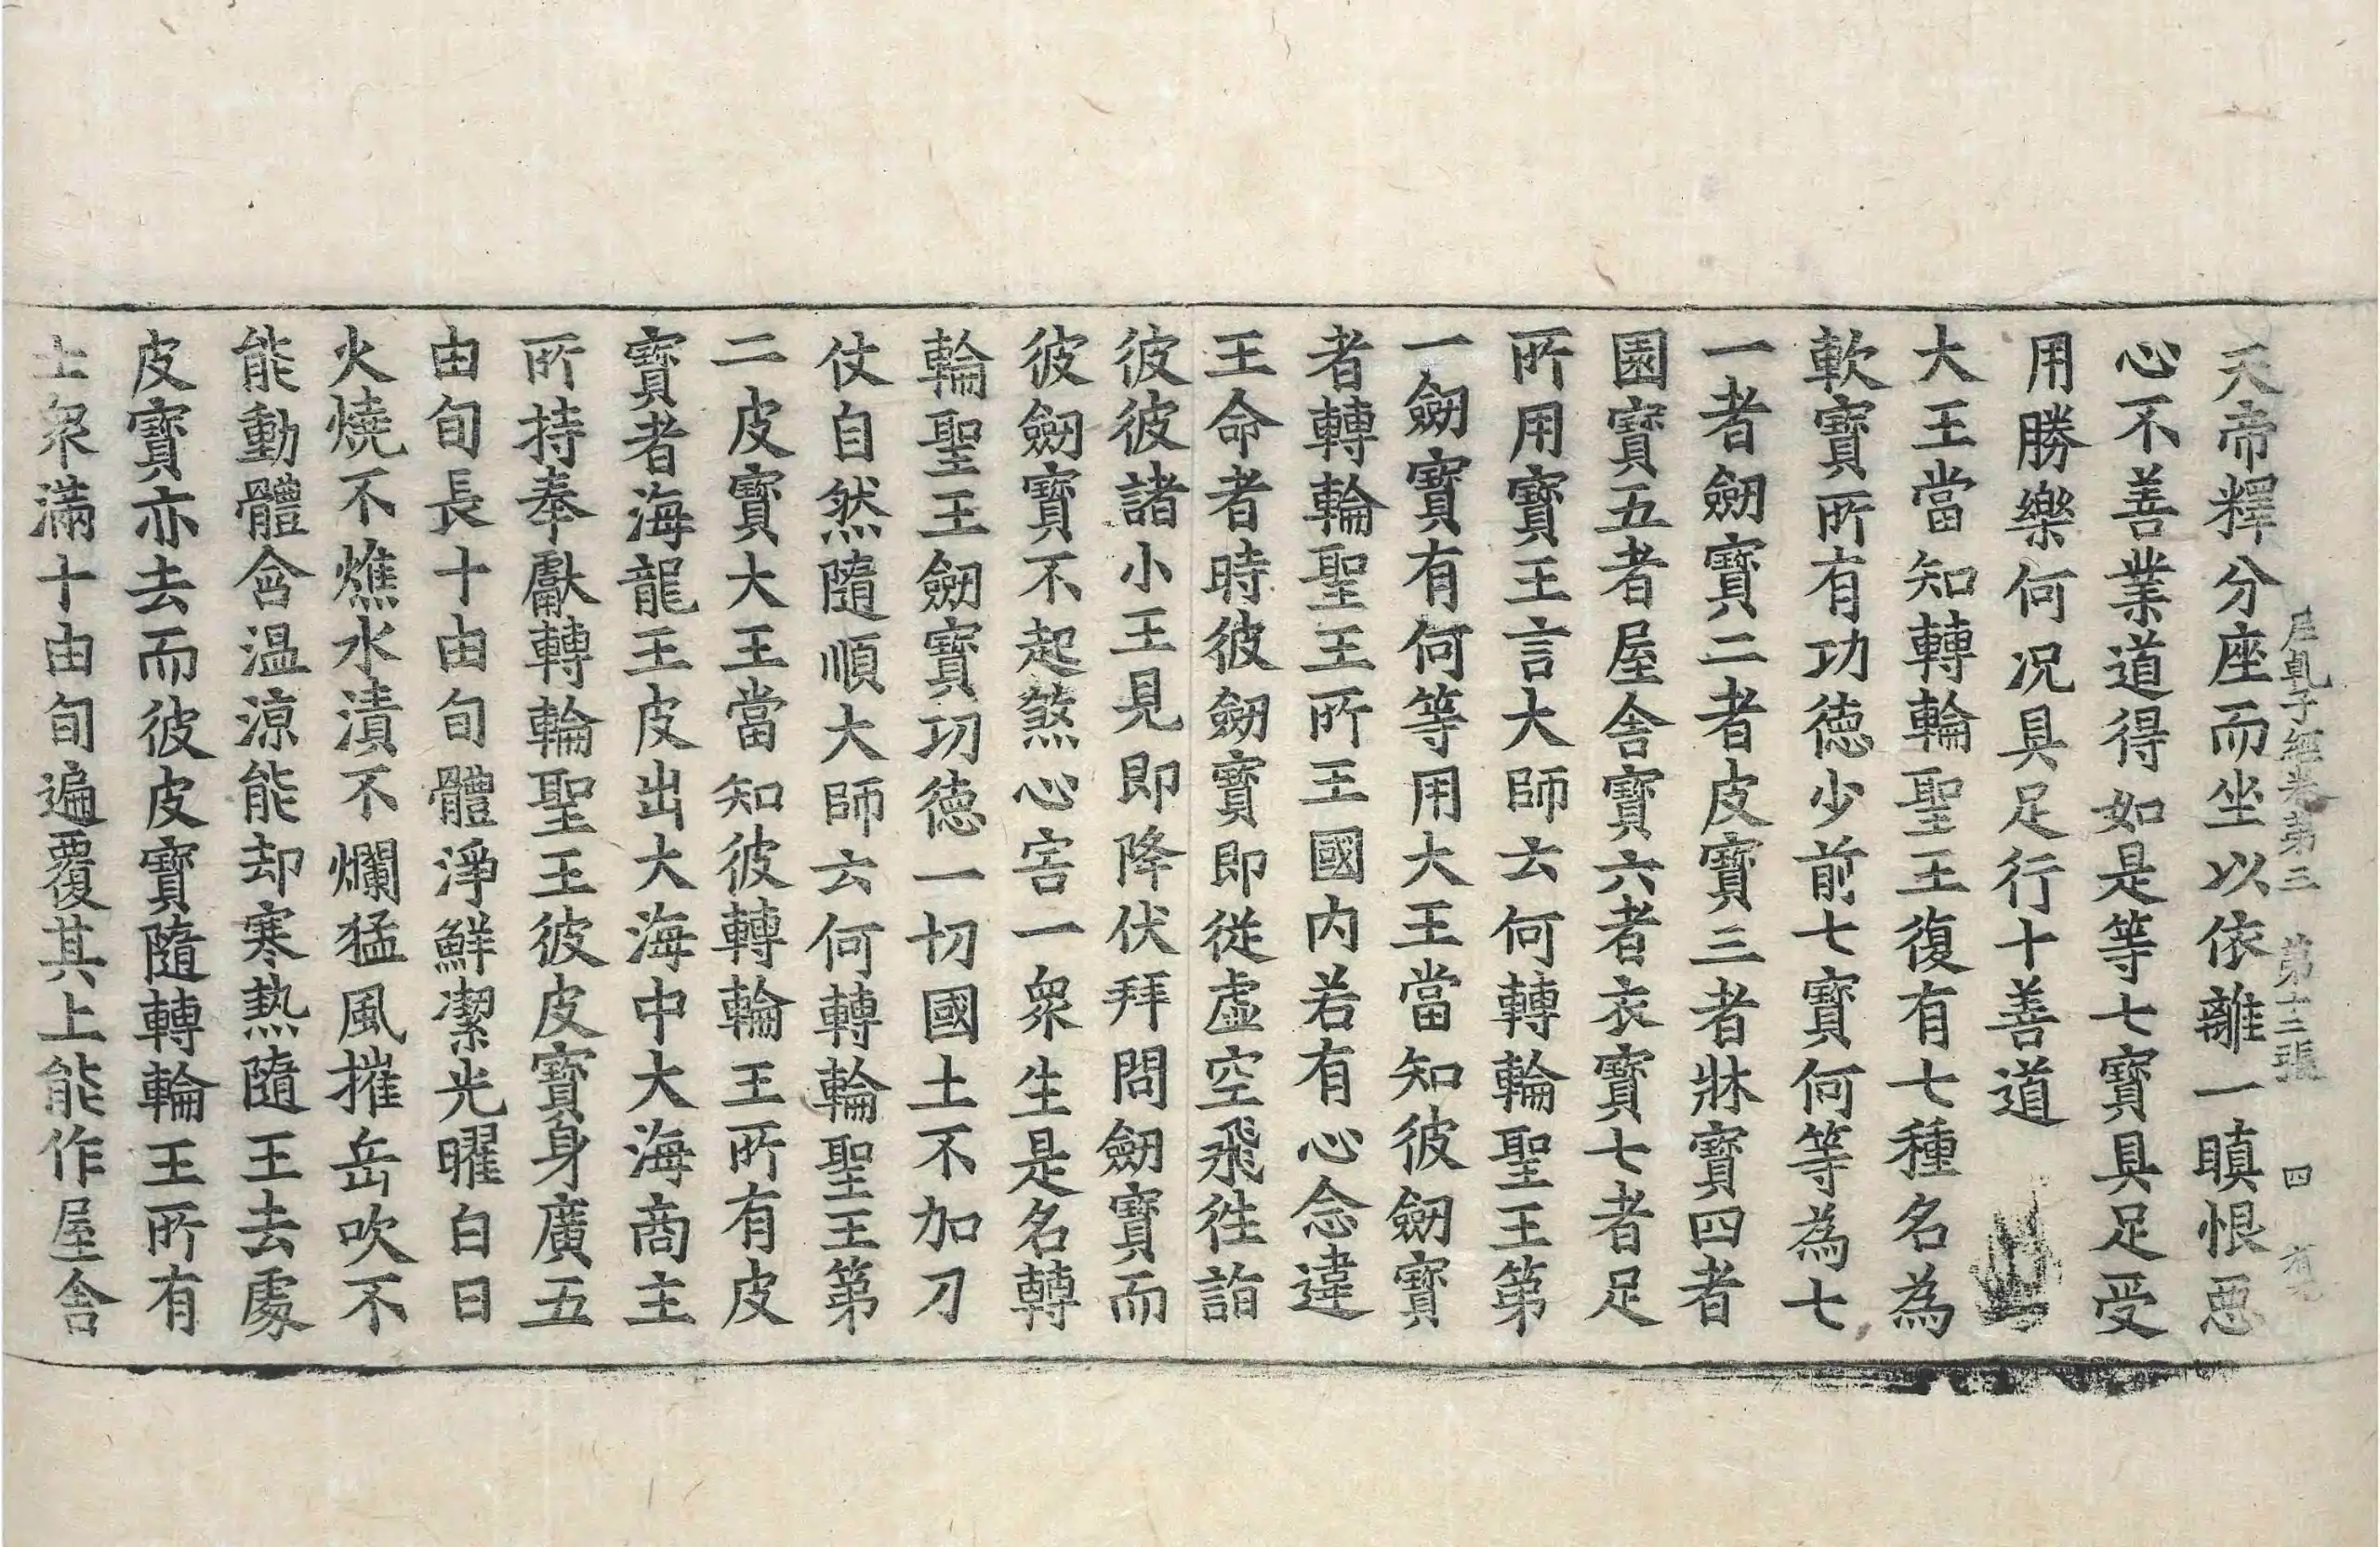 尼乹子經卷第三 第十二張 四
天帝釋分座而坐以依離一瞋恨惡
心不善業道得如是等七寶具足受
用勝樂何况具足行十善道
大王當知轉輪聖王復有七種名為
軟寶所有功德少前七寶何等為七
一者劒寶二者皮寶三者牀寶四者
園寶五者屋舍寶六者衣寶七者足
所用寶王言大師云何轉輪聖王第
一劒寶有何等用大王當知彼劒寶
者轉輪聖王所王國內若有心念違
王命者時彼劒寶即從虛空飛徃詣
彼彼諸小王見即降伏拜問劒寶而
彼劒寶不起煞心害一衆生是名轉
輪聖王劒寶功德一切國土不加刀
仗自然隨順大師云何轉輪聖王第
二皮寶大王當知彼轉輪王所有皮
寶者海龍王皮出大海中大海商主
所持奉獻轉輪聖王彼皮寶身廣五
由旬長十由旬體淨鮮潔光曜白日
火燒不燋水漬不爛猛風摧岳吹不
能動體含温涼能却寒熱隨王去處
皮寶亦去而彼皮寶隨轉輪王所有
士衆滿十由旬遍覆其上能作屋舍